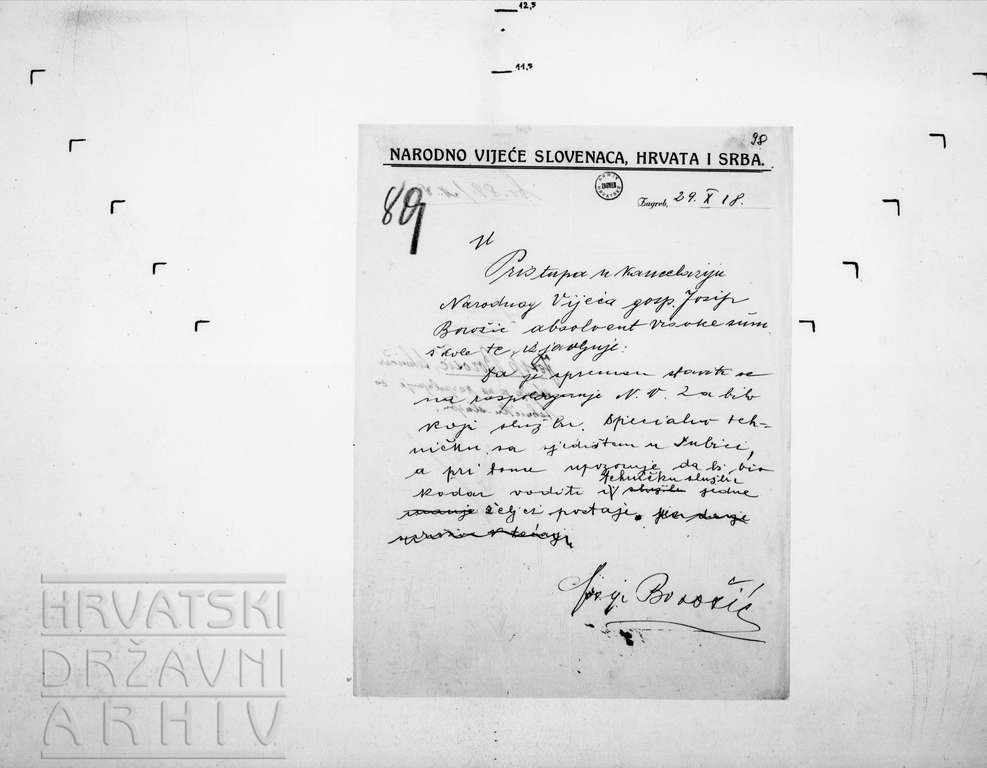 12,3
11,3
98
NARODNO VIJEĆE SLOVENACA, HRVATA I SRBA.
ARHIV ZAGREB
Zagreb, 29. X 18.
89
Pristupa u kancelariju
Narodnog Vijeća gosp. Josip
Borošić absolvent visoke šum.
škole te izjavljuje:
Da je spreman staviti se
na raspolaganje N. V. za bilo
koji službu. Specialno teh-
ničku sa sjedištem u Dubici,
a pri tome upozoruje da bi bio
tehničku službu
kadar voditi i službu jedne
manje željez postaje.
Josip Borošić
HRVATSKI
DRŽAVNI
ARHIV